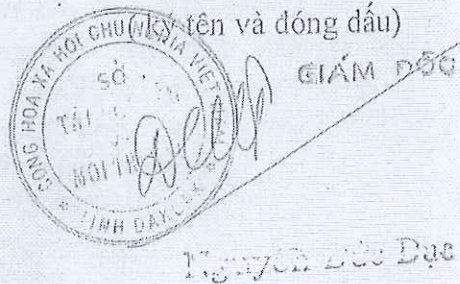 (ký tên và đóng dấu)
GIÁM ĐỐC
CỘNG HOA XÃ HỘI CHỦ NGHĨA VIỆT
SỞ
TÀI
MÔI TR
* TỈNH ĐĂKLĂK *
Nguyễn Đức